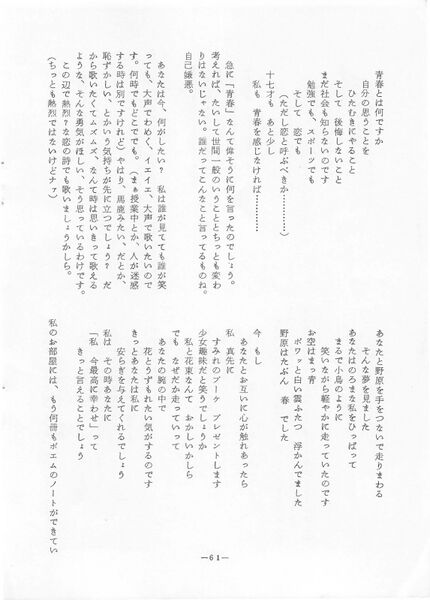 青春とは何ですか
自分の思うことを
ひたむきにやること
そして　後悔しないこと
まだ社会も知らないのです
勉強でも、スポーツでも
そして　恋でも
（ただし恋と呼ぶべきか…………）
十七才も　あと少し
私も　青春を感じなければ…………
急に「青春」なんて偉そうに何を言ったのでしょう。
考えれば、たいして世間一般のいうこととちっとも変わ
りはないじゃない。誰だってこんなこと言ってるものね。
自己嫌悪。
あなたは今、何がしたい？　私は誰が見てても誰が笑
っても、大声でわめく、イエイエ、大声で歌いたいので
す。何時でもどこででも。（まぁ授業中とか、人が迷惑
する時は別ですけれど）やはり、馬鹿みたい、だとか、
恥ずかしい、とかいう気持ちが先に立つでしょう？　だ
から歌いたくてムズムズ、なんて時は思いきって歌える
ような、そんな勇気がほしい、そう思っているわけです。
この辺で熱烈？な恋の詩でも歌いましょうかしら。
（ちっとも熱烈ではないけどナァ）
あなたと野原を手をつないで走りまわる
そんな夢を見ました
あなたはのろまな私をひっぱって
まるで小鳥のように
笑いながら軽やかに走っていたのです
お空はまっ青
ポワッと白い雲ふたつ　浮かんでました
野原はたぶん　春　でした
今　もし
あなたとお互いに心が触れあったら
私　真先に
すみれのブーケ　プレゼントします
少女趣味だと笑うでしょうか
私と花束なんて　おかしいかしら
でも　なぜだか走っていって
あなたの腕の中で
花とうずもれたい気がするのです
きっとあなたは私に
安らぎを与えてくれるでしょう
私は　その時あなたに
「私　今最高に幸わせ」って
きっと言えることでしょう
私のお部屋には、もう何冊もポエムのノートができてい
—61—